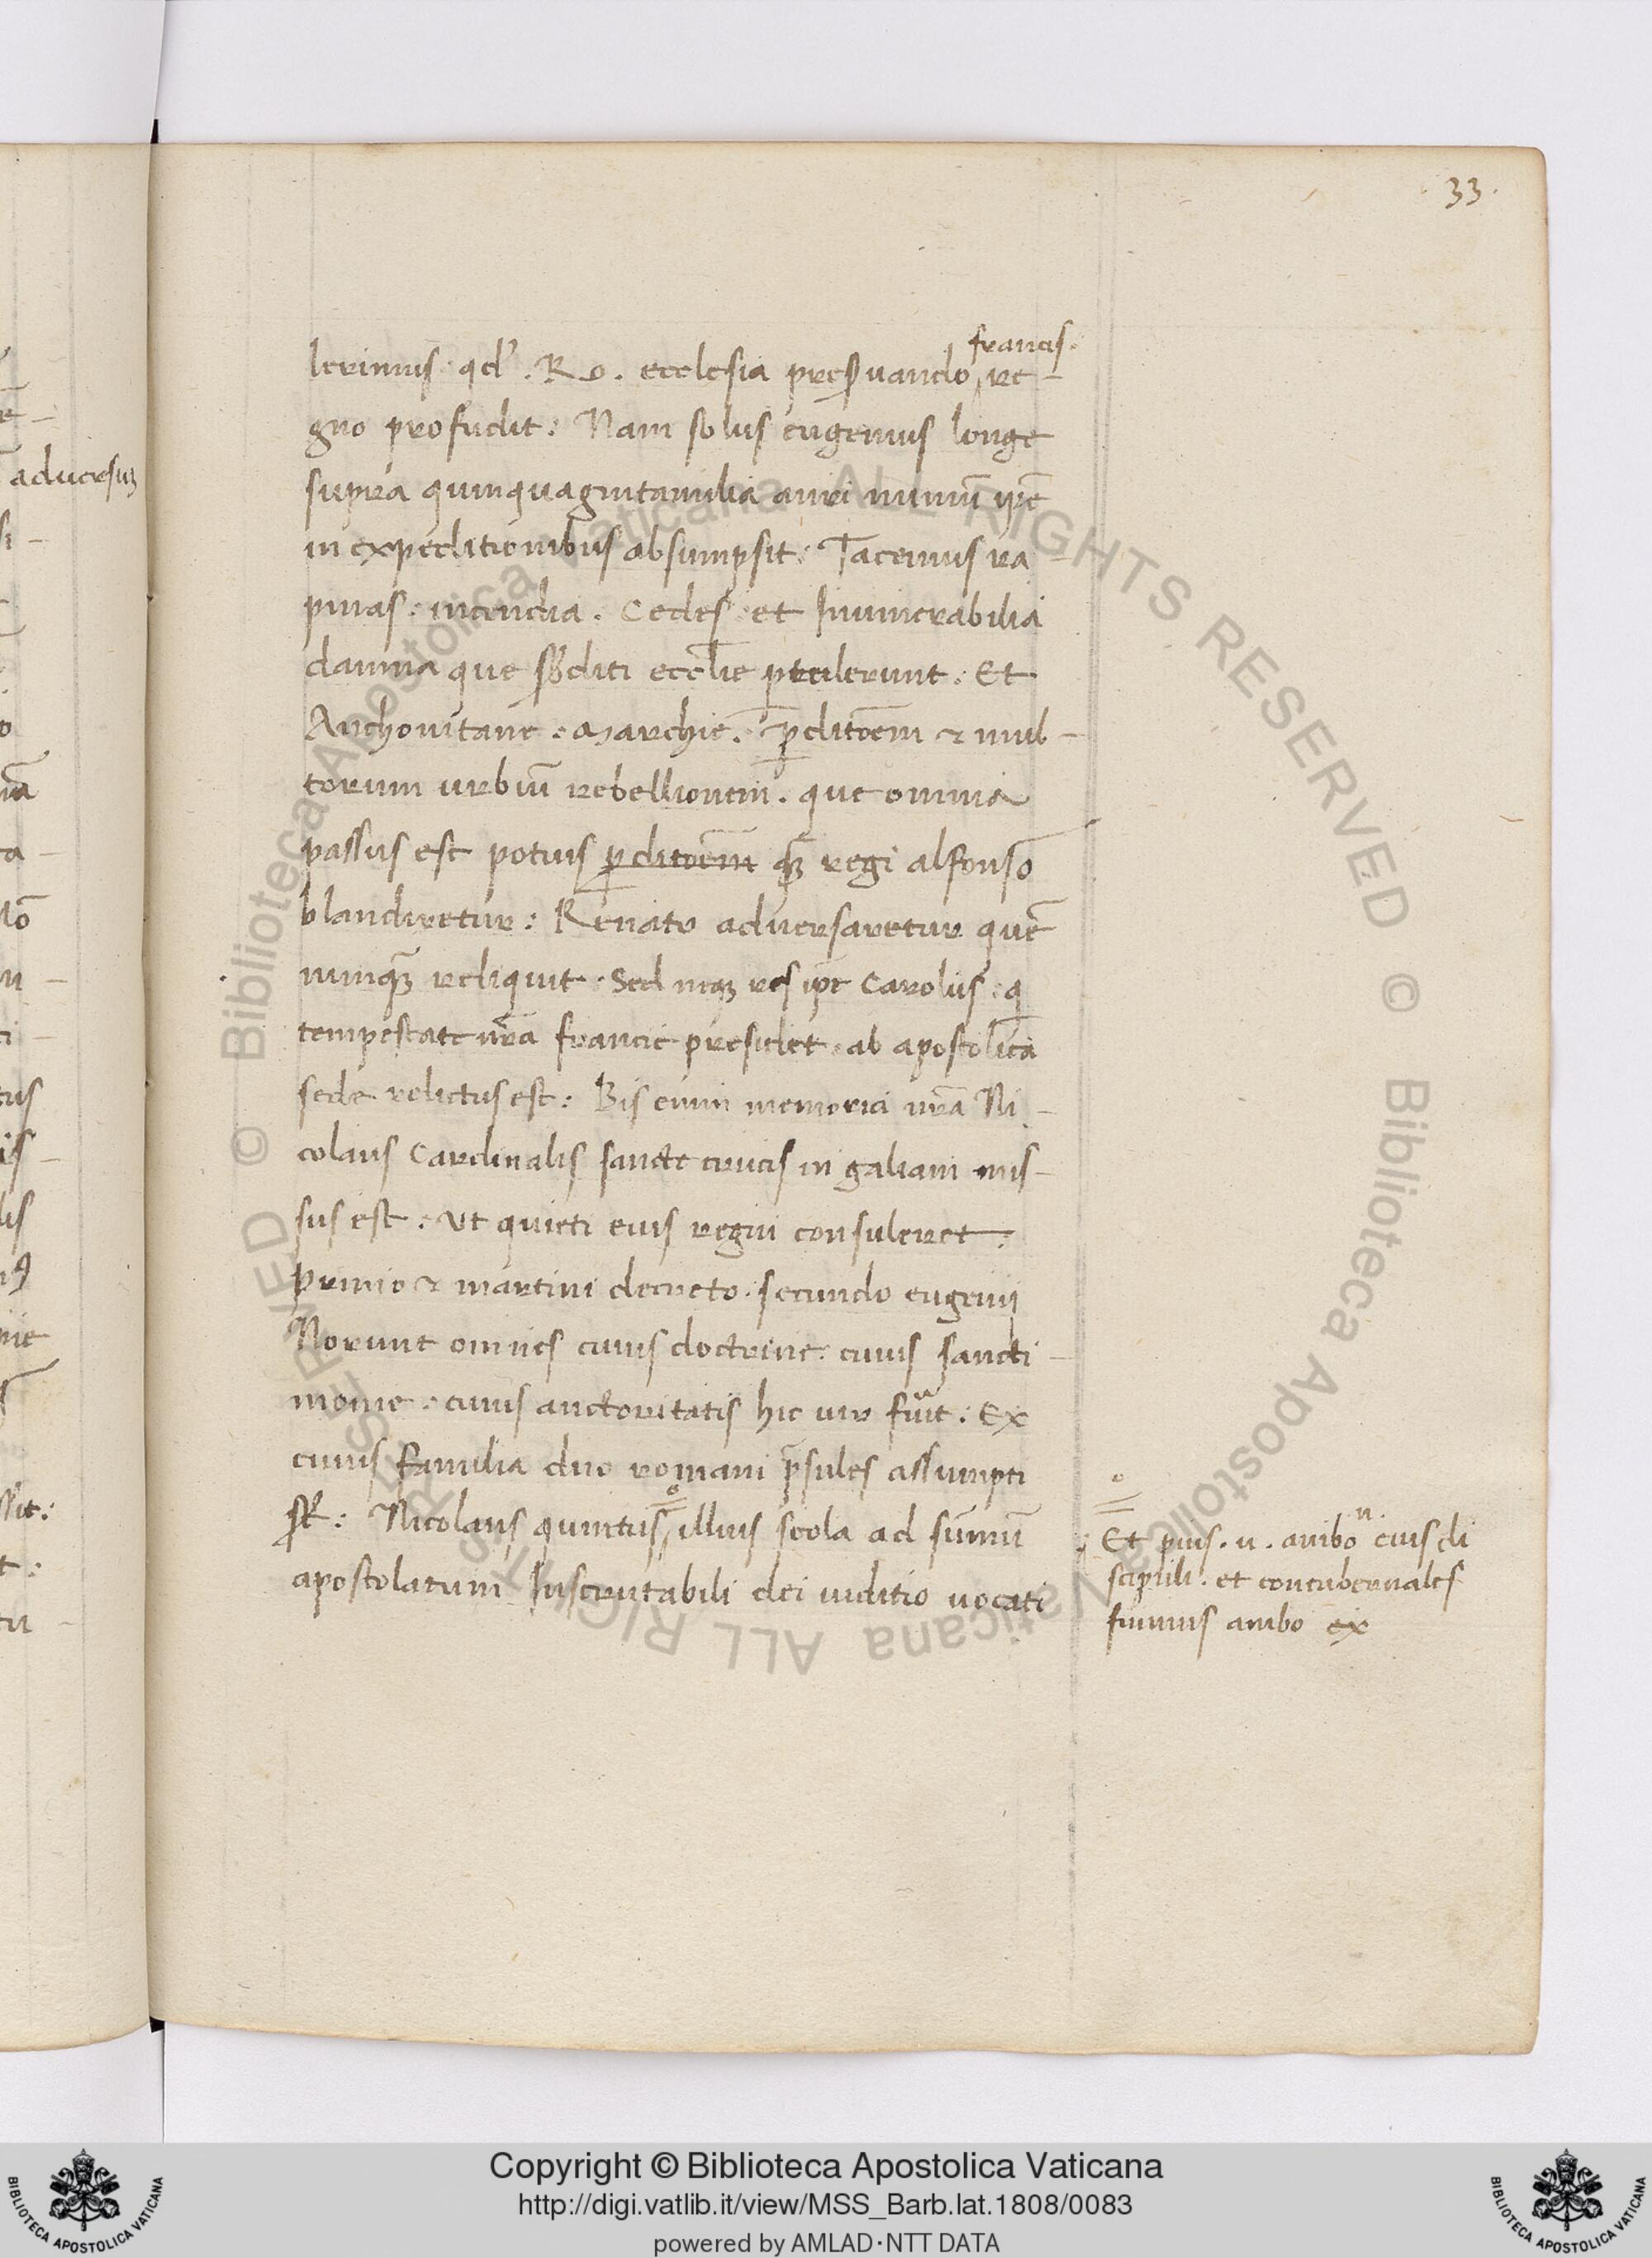 33.
francis.
lerimus qd'. Ro. ecclesia preseruando re-
gno profudit: Nam solus eugenius longe
supra quinquagintamilia auri numū ipē
in expeditionibus absumpsit: Tacemus ra
pinas: incendia. Cedes: et Inumerabilia
damna que sbditi eccl̄ie ptulerunt: Et
Anchonitane. Marchie. p̱ditōem & mul-
torum urbiū rebellionem. que omnia
passus est potius p̱ditōem qȝ regi alfonso
blandiretur: Renato aduersaretur quē
nunqȝ reliquit: Sed neqȝ res ip̄e Carolus: q
tempestate nrā francie presidet. ab apostolica
sede relictus est: Bis enim memoria nrā Ni-
colaus Cardinalis sancte crucis in galiam mis-
sus est: Ut quieti eius regni consuleret:
primo & martini decreto. secundo eugenij
Norunt omnes cuius doctrine: cuius sancti-
monie: cuius auctoritatis hic uir fuit: Ex
cuius familia duo romani p̄sules assumpti
st: Nicolaus quintus illius scola ad sumū
apostolatum Inscrutabili dei iuditio uocati
Et pius. ii. ambo n. eius di
scipuli. et contubernales
fuimus ambo ex
aduersuȝ
Copyright © Biblioteca Apostolica Vaticana
http://digi.vatlib.it/view/MSS_Barb.lat.1808/0083
powered by AMLAD·NTT DATA
BIBLIOTECA APOSTOLICA VATICANA
BIBLIOTECA APOSTOLICA VATICANA
© Biblioteca Apostolica Vaticana ALL RIGHTS RESERVED © Biblioteca Apostolica Vaticana ALL RIGHTS RESERVED